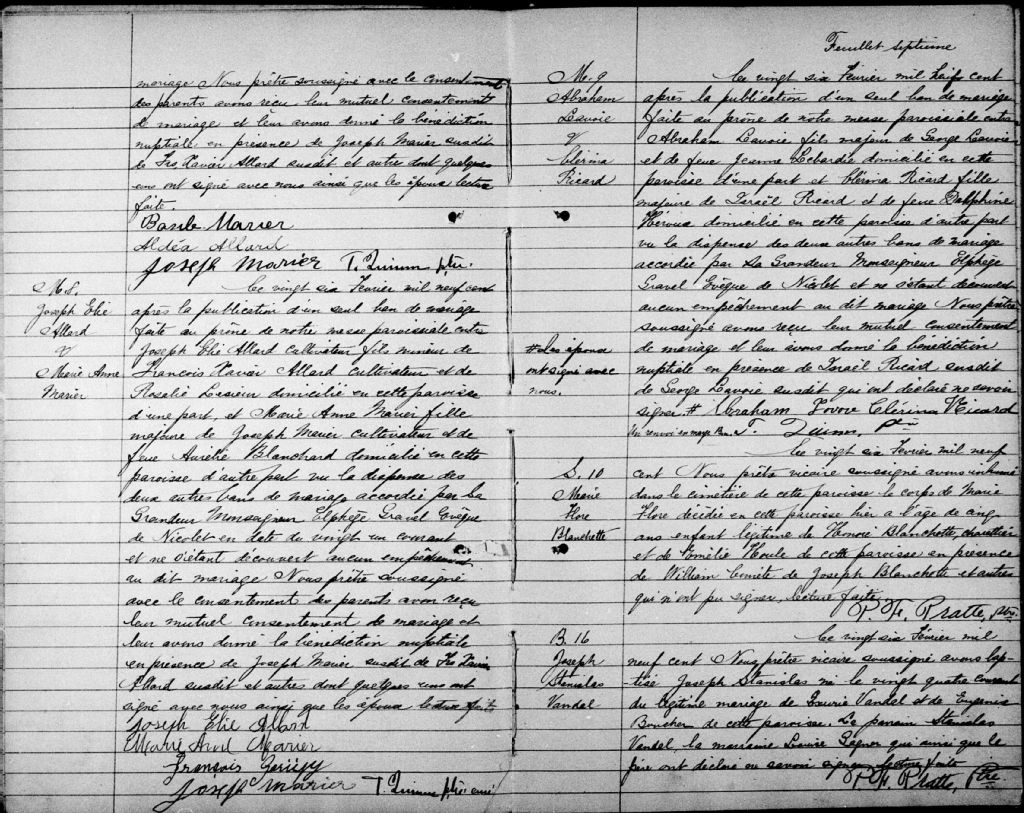 mariage Nous prêtre soussigné avec le consentement
des parents avons reçu leur mutuel consentement
de mariage et leur avons donné la bénédiction
nuptiale en présence de Joseph Marier susdit
de Frs Xavier Allard susdit et autre dont quelques
uns ont signé avec nous ainsi que les époux lecture
faite.
Basile Marier
Aldéa Allard
Joseph Marier T. Quinn ptre.
M. 8.
Joseph Elie
Allard
&
Marie Anne
Marier
Ce vingt six Fevrier mil neuf cent
après la publication d'un seul ban de mariage
faite au prône de notre messe paroissiale entre
Joseph Elie Allard cultivateur fils mineur de
François Xavier Allard cultivateur et de
Rosalie Lesieur domicilié en cette paroisse
d'une part, et Marie Anne Marier fille
majeure de Joseph Marier cultivateur et de
feue Aurélie Blanchard domicilié en cette
paroisse d'autre part vu la dispense des
deux autres bans de mariage accordié par Sa
Grandeur Monseigneur Elphège Gravel Evêque
de Nicolet en date du vingt un courant
et ne s'étant découvert aucun empêchement
au dit mariage Nous prêtre soussigné
avec le consentement des parents avons reçu
leur mutuel consentement de mariage et
leur avons donné la bénédiction nuptiale
en présence de Joseph Marier susdit de Frs Xavier
Allard susdit et autres dont quelques uns ont
signé avec nous ainsi que les époux lecture faite
Joseph Elie Allard
Marie Anne Marier
François
Joseph Marier T. Quinn ptre curé
Feuillet septième
M. 9
Abraham
Lavoie
&
Clérina
Ricard
Ce vingt six Février mil neuf cent
après la publication d'un seul ban de mariage
faite au prône de notre messe paroissiale entre
Abraham Lavoie fils majeur de George Lavoie
et de feue Jeanne domicilié en cette
paroisse d'une part et Clérina Ricard fille
majeure de Israël Ricard et de feue Dalphine
Héroux domicilié en cette paroisse d'autre part
vu la dispense des deux autres bans de mariage
accordié par Sa Grandeur Monseigneur Elphège
Gravel Evêque de Nicolet et ne s'étant découvert
aucun empêchement au dit mariage Nous prêtre
soussigné avons reçu leur mutuel consentement
de mariage et leur avons donné la bénédiction
nuptiale en présence de Israël Ricard susdit
de George Lavoie susdit qui ont déclaré ne savoir
signer. # Abraham Lovoie Clérina Ricard
Un renvoi en marge Bon. T. Quinn. Ptre
# Les époux
ont signé avec
nous.
S. 10
Marie
Flore
Blanchette
Ce vingt six Fevrier mil neuf
cent Nous prêtre vicaire soussigné avons inhumé
dans le cimetière de cette paroisse le corps de Marie
Flore décédié en cette paroisse hier à l'âge de cinq
ans enfant légitime de Honoré Blanchette,
et de Emélie Houle de cette paroisse en présence
de William de Joseph Blanchette et autres
qui n'ont pu signer, lecture faite.
P. H. Pratte, ptre.
B. 16
Joseph
Stanislas
Vandal
Ce vingt six Février mil
neuf cent Nous prêtre vicaire soussigné avons bap-
tisé Joseph Stanislas né le vingt quatre courant
du légitime mariage de Vandal et de Eugenie
Boucher de cette paroisse. Le parrain Stanislas
Vandal, la marraine Louise Gagnon qui ainsi que le
père ont déclaré ne savoir signer, lecture faite
P. H. Pratte, Ptre